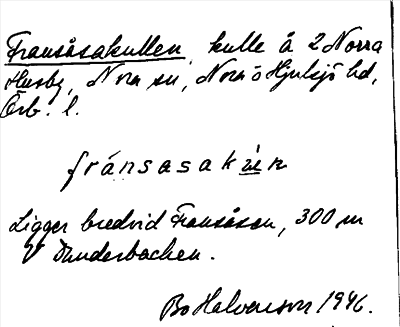 Fransåsakullen, kulle å 2 Norra
Husby, Nora sn, Nora o Hjulsjö hd,
Örb. l.
fránsasak
Ligger bredvid Fransåsen, 300 m
V Dunderbacken.
Bo Halvenson 1946.